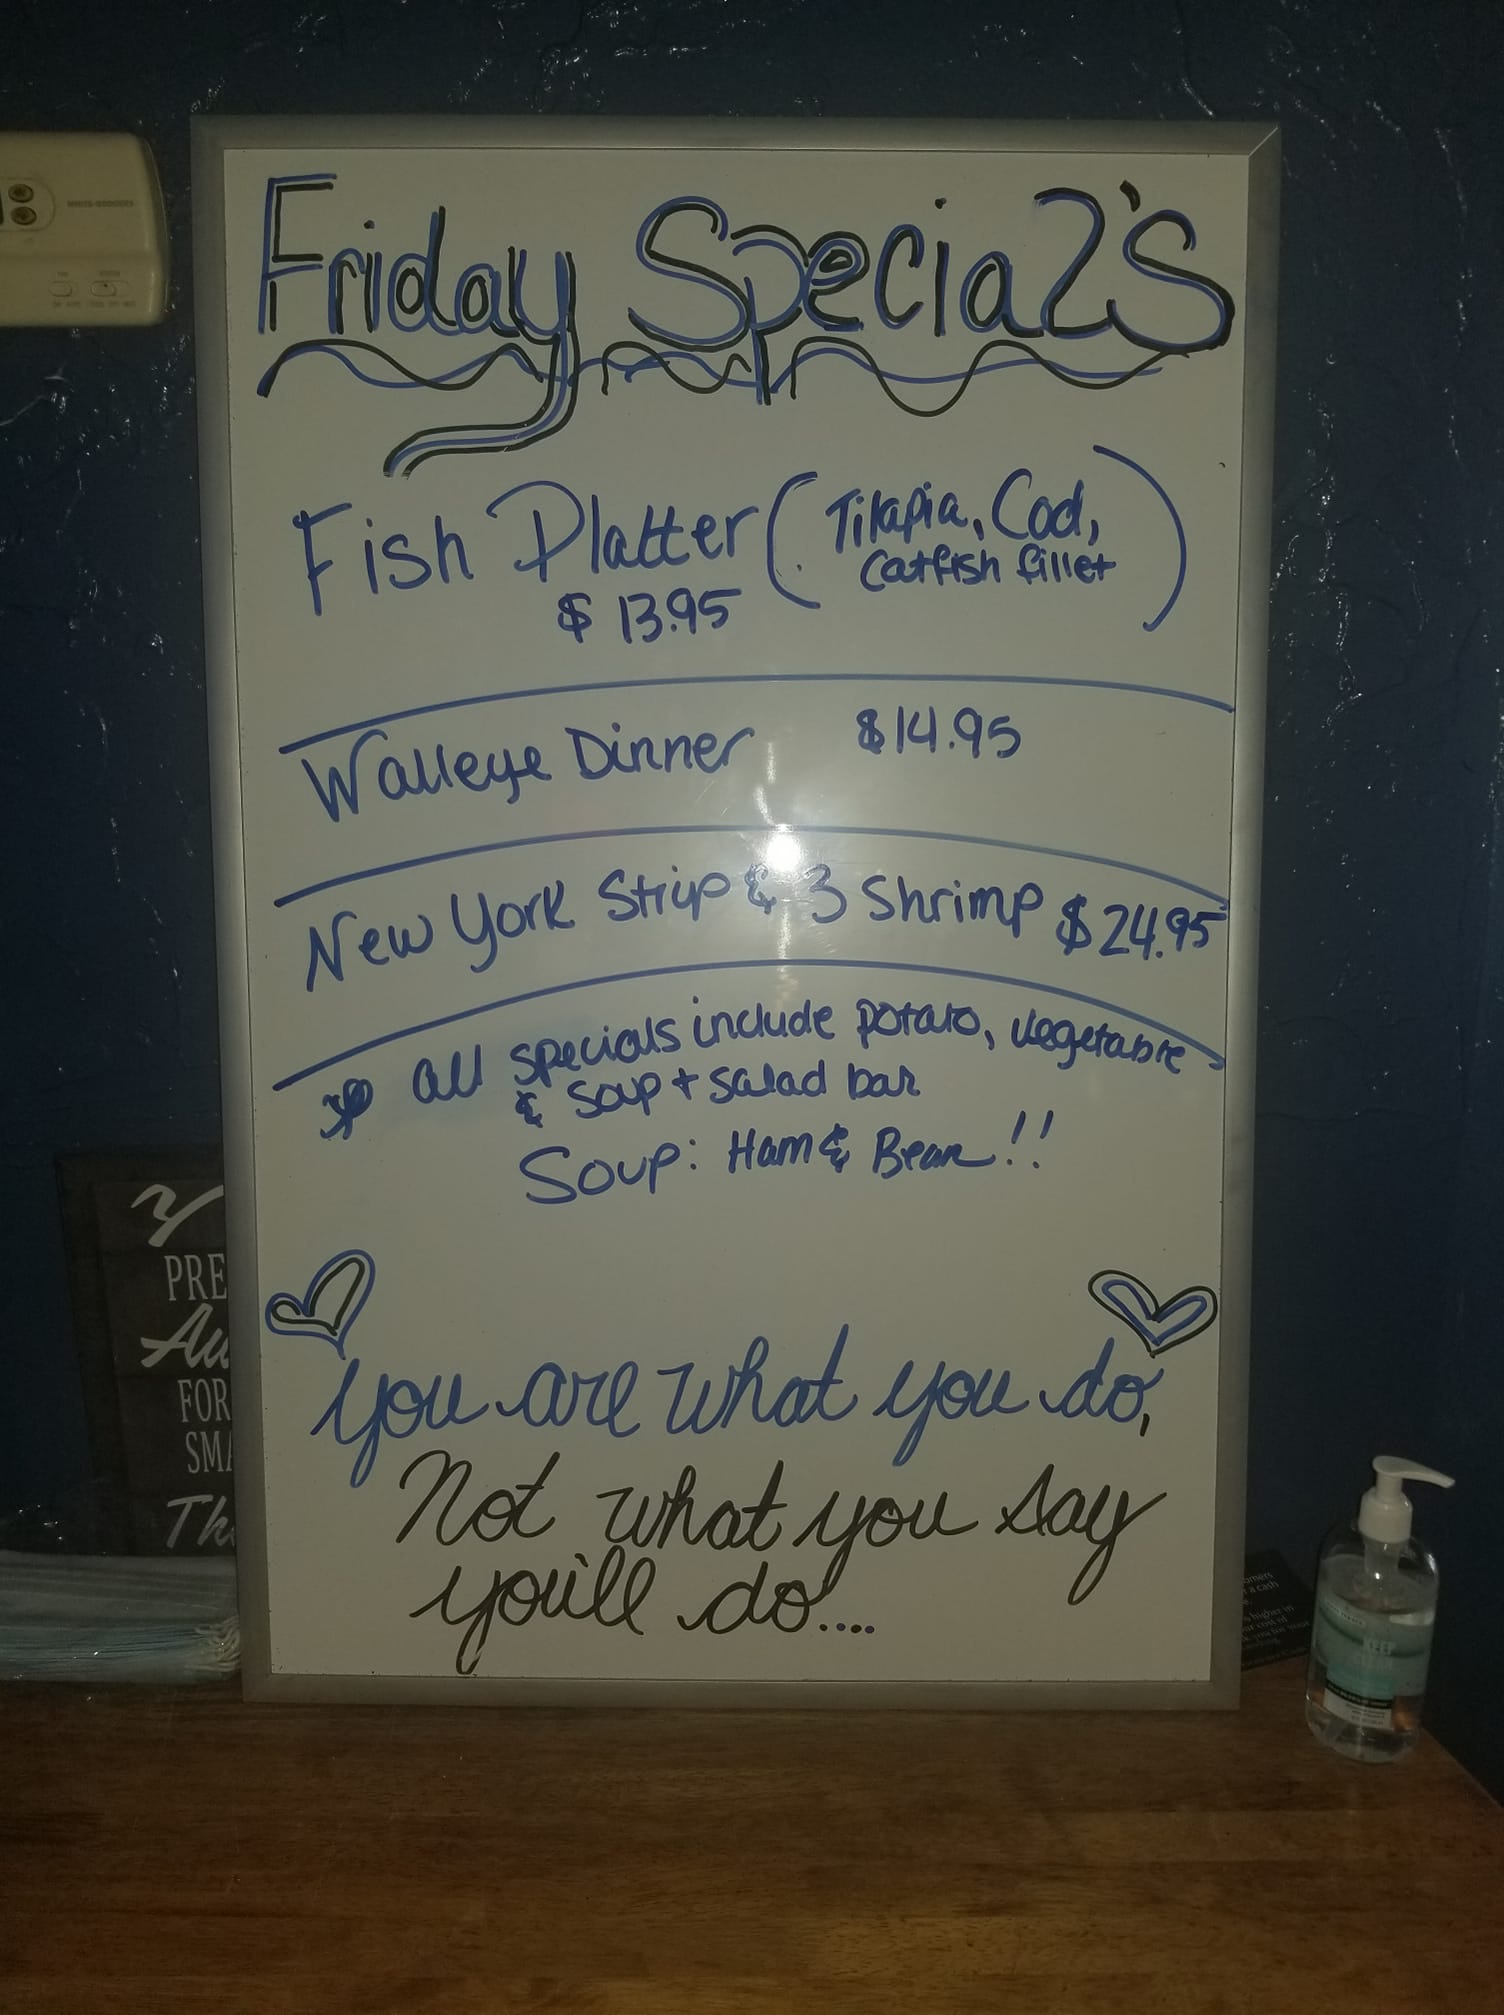 Friday Special's
Fish Platter (Tilapia, Cod,
Catfish fillet)
$13.95
Walleye Dinner $14.95
New York Strip & 3 Shrimp $24.95
all specials include potato, vegetable
& soup + salad bar
Soup: Ham & Bean!!
you are what you do,
Not what you say
you'll do....
WHITE-RODGERS
PRE
Au
FOR
SMA
The
KEEP